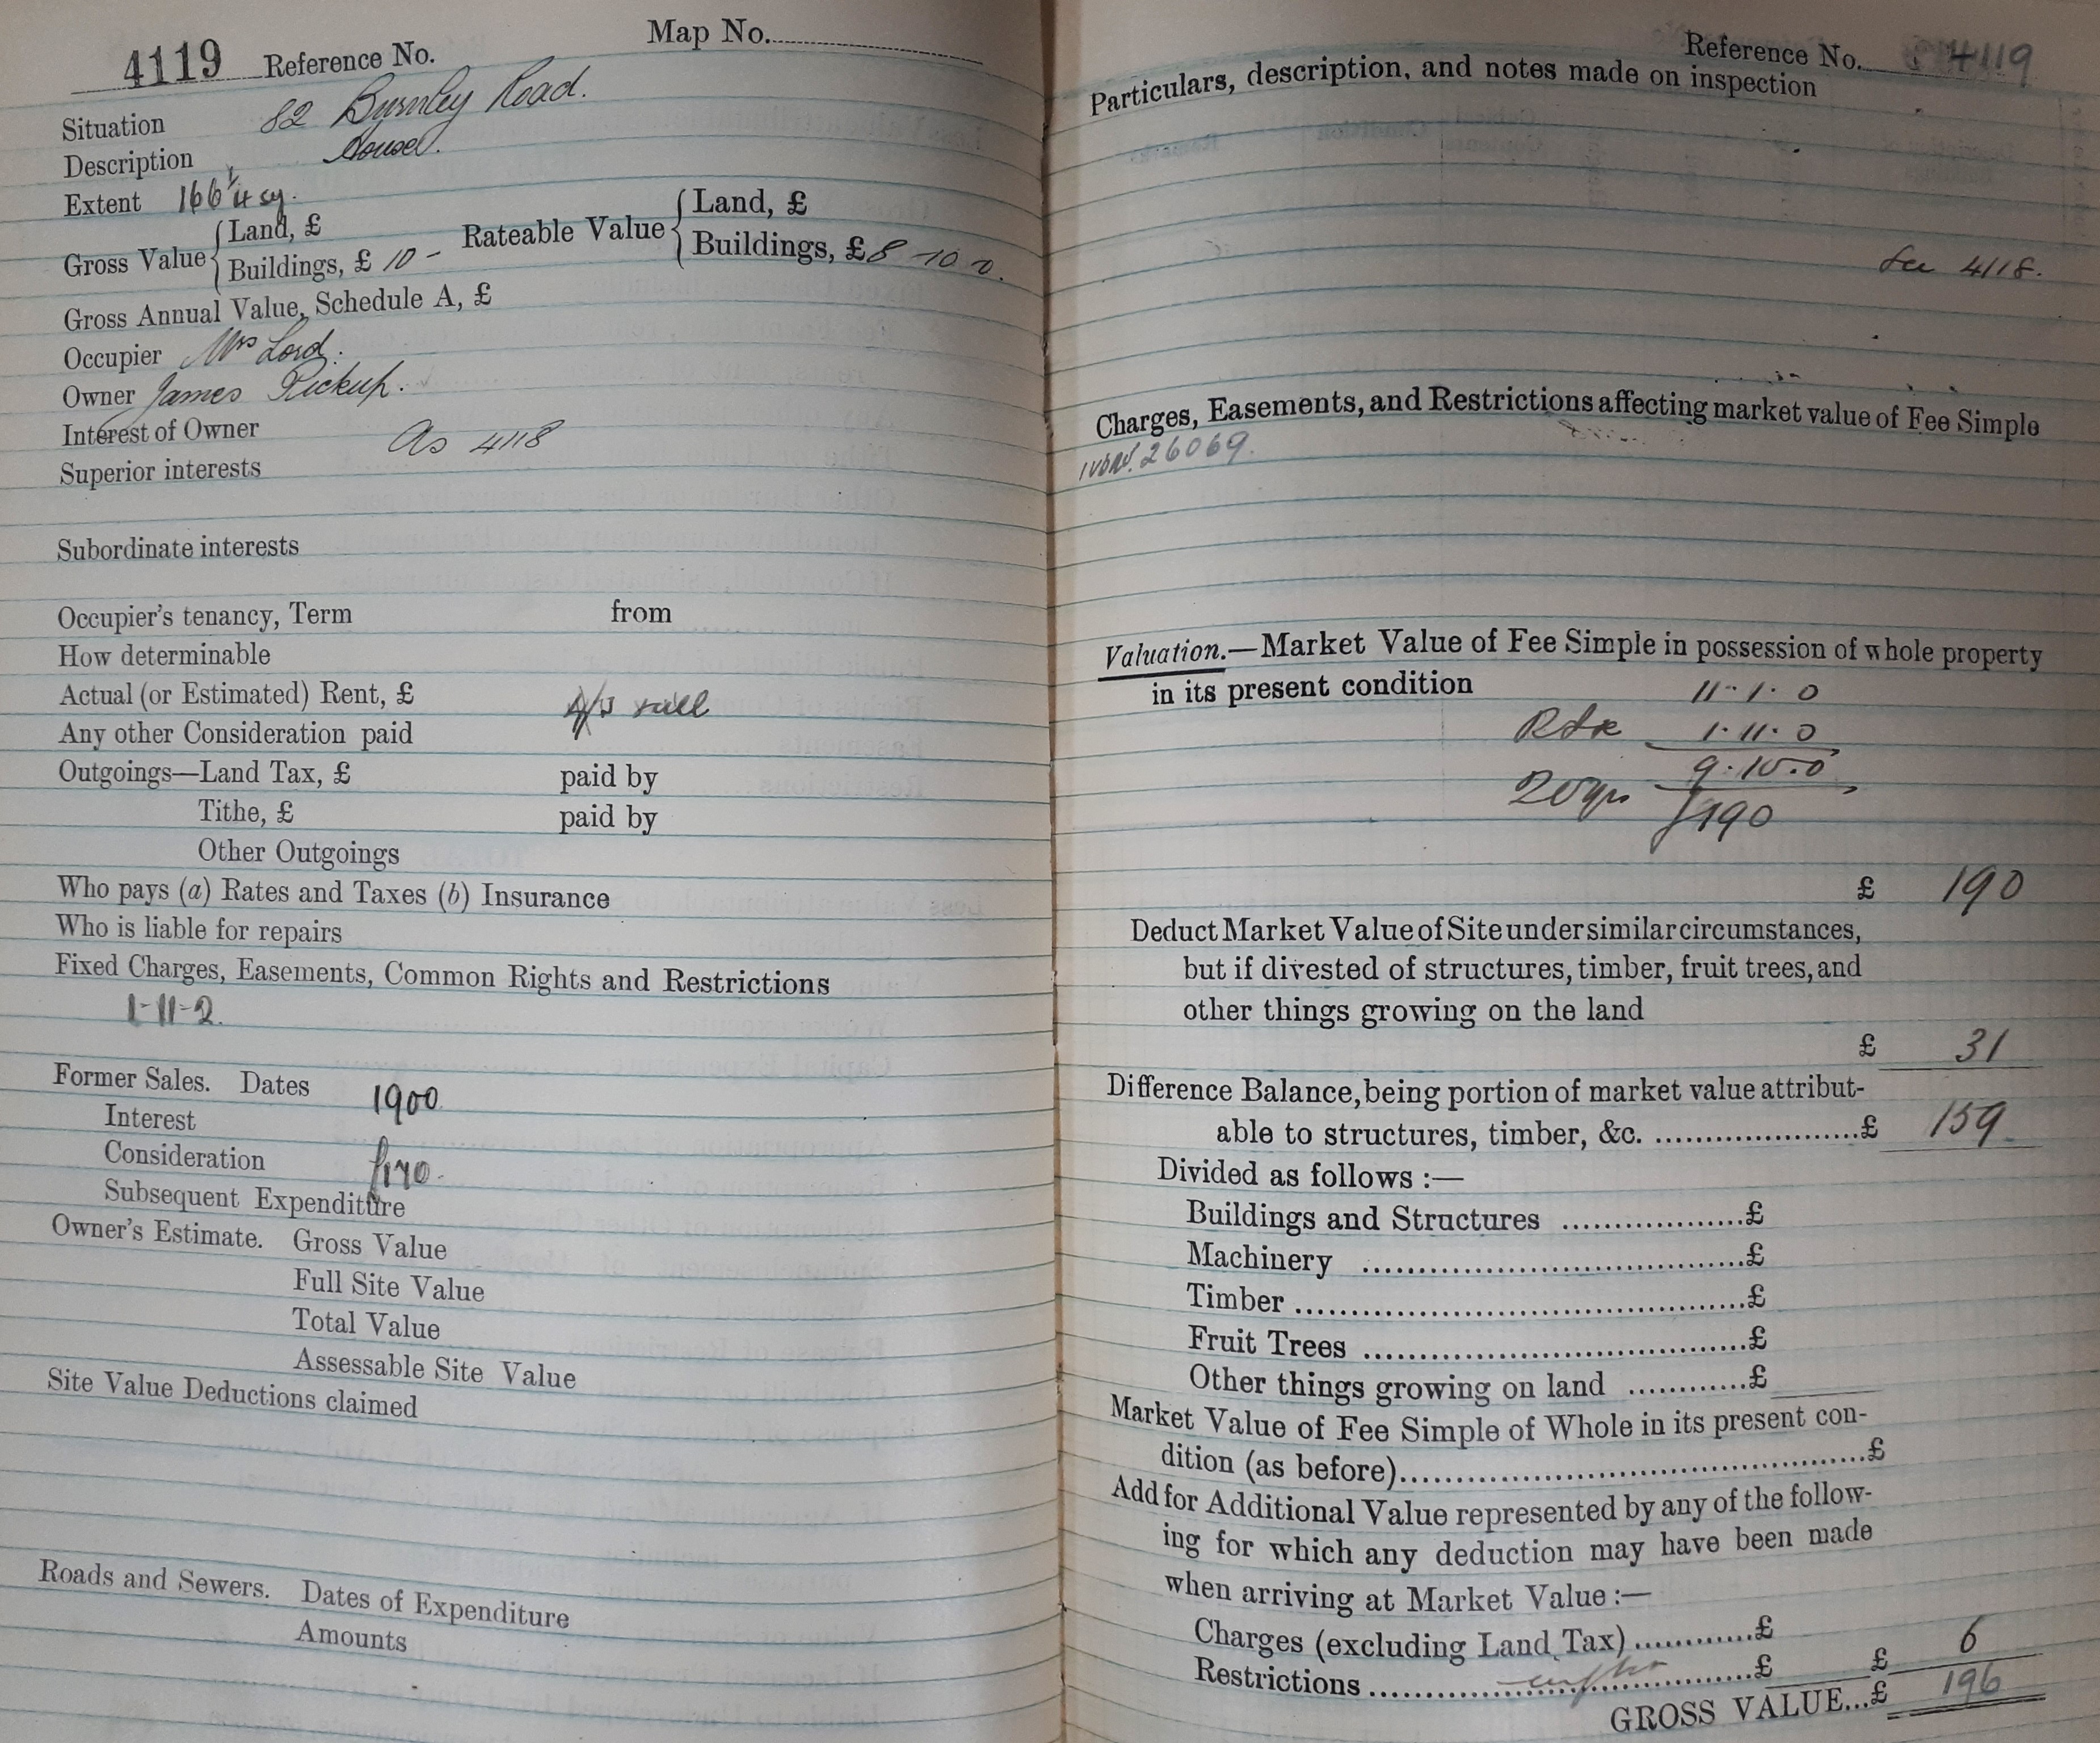 4119 Reference No. Map No.
Situation 82 Burnley Road.
Description House.
Extent 166 1/4 sy.
Gross Value { Land, £
Buildings, £ 10 -
Rateable Value { Land, £
Buildings, £ 8 - 10 - 0.
Gross Annual Value, Schedule A, £
Occupier Mrs Lord.
Owner James Pickup.
Interest of Owner
As 4118
Superior interests
Subordinate interests
Occupier's tenancy, Term from
How determinable
Actual (or Estimated) Rent, £
Any other Consideration paid
Outgoings—Land Tax, £ paid by
Tithe, £ paid by
Other Outgoings
Who pays (a) Rates and Taxes (b) Insurance
Who is liable for repairs
Fixed Charges, Easements, Common Rights and Restrictions
1-11-2.
Former Sales. Dates 1900
Interest
Consideration £170.
Subsequent Expenditure
Owner's Estimate. Gross Value
Full Site Value
Total Value
Assessable Site Value
Site Value Deductions claimed
Roads and Sewers. Dates of Expenditure
Amounts
Reference No. 4119
Particulars, description, and notes made on inspection
See 4118.
Charges, Easements, and Restrictions affecting market value of Fee Simple
26069.
Valuation.—Market Value of Fee Simple in possession of whole property
in its present condition
11. 1. 0
1. 11. 0
9. 10. 0
20 yrs £190
£ 190
Deduct Market Value of Site under similar circumstances,
but if divested of structures, timber, fruit trees, and
other things growing on the land
£ 31
Difference Balance, being portion of market value attribut-
able to structures, timber, &c. ....................£ 159
Divided as follows :—
Buildings and Structures ..................£
Machinery ......................................£
Timber .............................................£
Fruit Trees ......................................£
Other things growing on land ............£
Market Value of Fee Simple of Whole in its present con-
dition (as before)..............................................£
Add for Additional Value represented by any of the follow-
ing for which any deduction may have been made
when arriving at Market Value :—
Charges (excluding Land Tax)............£
Restrictions ....................................£ £ 6
GROSS VALUE...£ 196